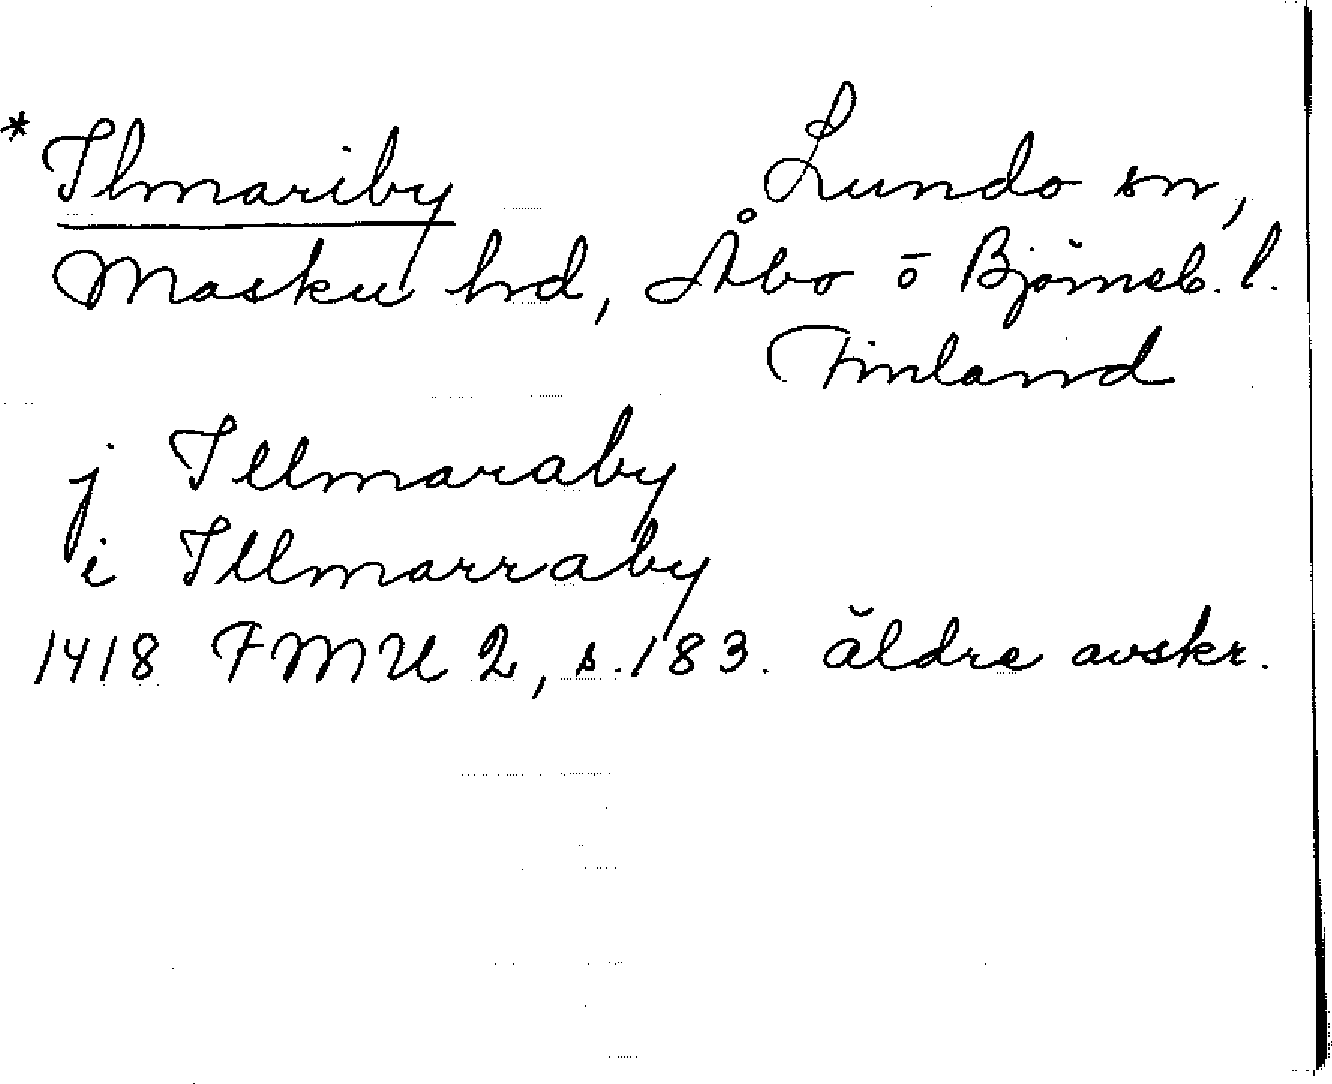 * Ilmariby Lundo sn,
Masku hd, Åbo o Björneb. l.
Finland
j Illmaraby
i Illmarraby
1418 FMU 2, s. 183. äldre avskr.